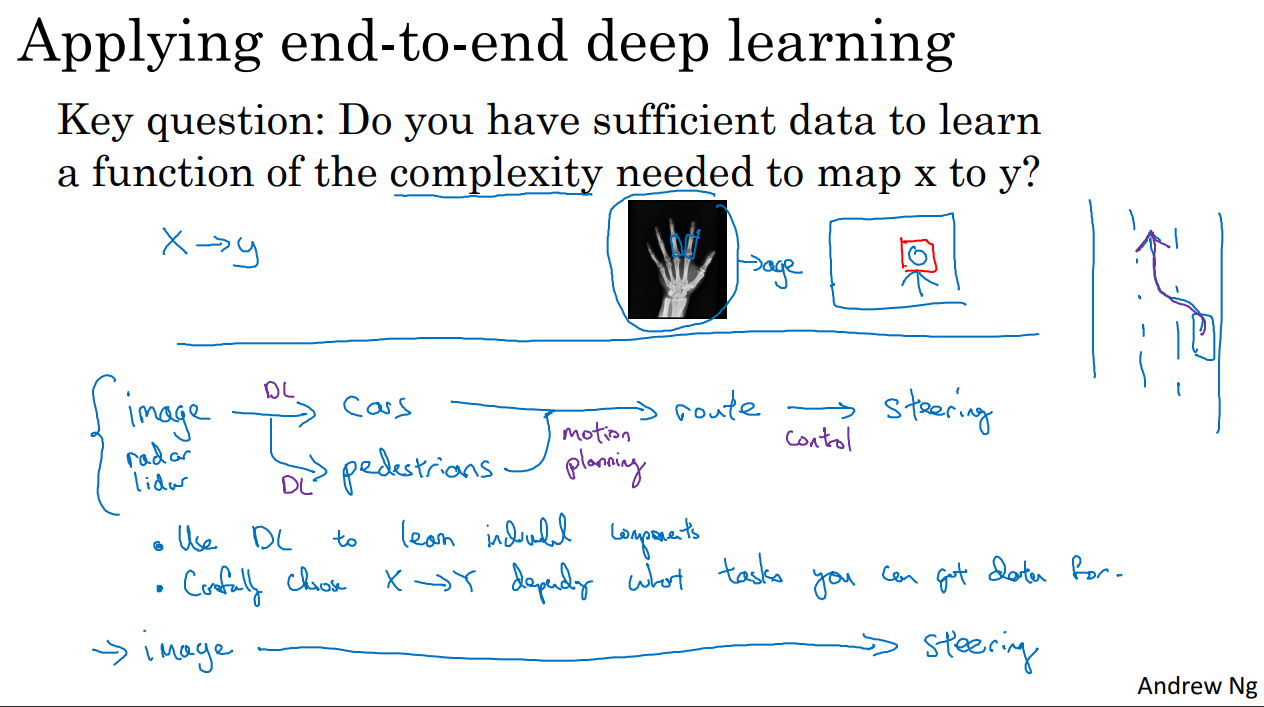 Applying end-to-end deep learning
Key question: Do you have sufficient data to learn
a function of the complexity needed to map x to y?
X → y
→ age
image DL → cars → route → steering
radar
lidar
DL → pedestrians
motion
planning
control
• Use DL to learn components
• Carefully choose X → Y what tasks you can get data for.
→ image → steering
Andrew Ng